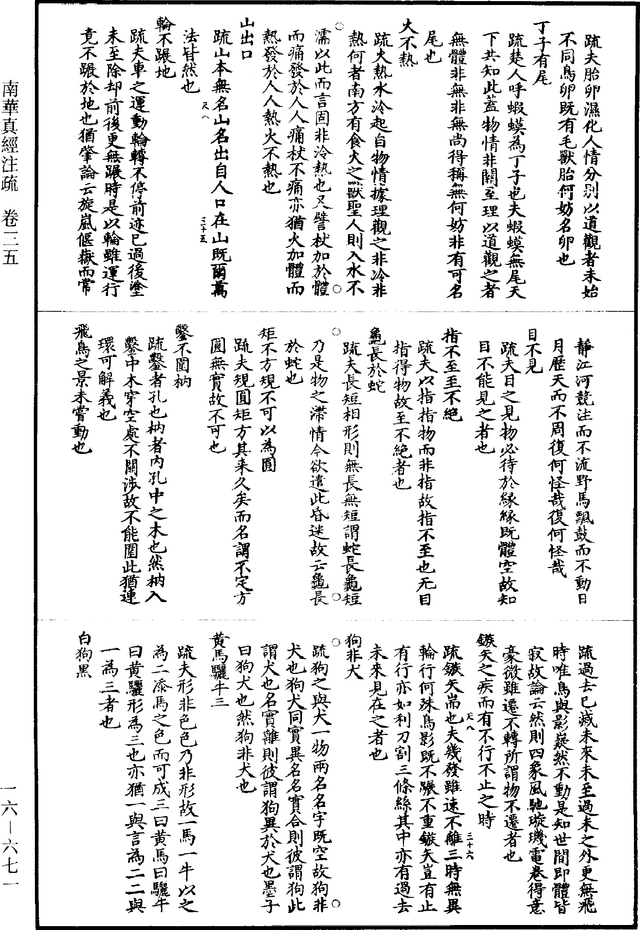 疏夫胎卵濕化人情分別以道觀者未始
不同鳥卵既有毛獸胎何妨名卵也
丁子有尾
疏楚人呼蝦蟆為丁子也夫蝦蟆無尾天
下共知此蓋物情非關至理以道觀之者
無體非無非無尚得稱無何妨非有可名
尾也
火不熱
疏火熱水冷起自物情據理觀之非冷非
熱何者南方有食火之獸聖人則入水不
濡以此而言固非冷熱也又譬杖加於體
而痛發於人人痛杖不痛亦猶火加體而
熱發於人人熱火不熱也
山出口
疏山本無名山名出自人口在山既爾萬
法皆然也
輪不蹍地
疏夫車之運動輪轉不停前迹已過後塗
未至除却前後更無蹍時是以輪雖運行
竟不蹍於地也猶肇論云旋嵐偃嶽而常
靜江河競注而不流野馬飄鼓而不動日
月歷天而不周復何怪哉復何怪哉
目不見
疏夫目之見物必待於緣緣既體空故知
目不能見之者也
指不至至不絕
疏夫以指指物而非指故指不至也无目
指得物故至不絕者也
龜長於蛇
疏夫長短相形則無長無短謂蛇長龜短
乃是物之滯情今欲遣此昏迷故云龜長
於蛇也
矩不方規不可以為圓
疏夫規圓矩方其來久矣而名謂不定方
圓無實故不可也
鑿不圍枘
疏鑿者孔也枘者內孔中之木也然枘入
鑿中木穿空處不關涉故不能圍此猶連
環可解義也
飛鳥之景未嘗動也
疏過去已滅未來未至過未之外更無飛
時唯鳥與影嶷然不動是知世間即體皆
寂故論云然則四象風馳璇璣電卷得意
豪微雖遷不轉所謂物不遷者也
鏃矢之疾而有不行不止之時
疏鏃矢耑也夫幾發雖速不離三時無異
輪行何殊鳥影既不蹍不重鏃矢豈有止
有行亦如利刀割三條絲其中亦有過去
未來見在之者也
狗非犬
疏狗之與犬一物兩名名字既空故狗非
犬也狗犬同實異名名實合則彼謂狗此
謂犬也名實離則彼謂狗異於犬也墨子
曰狗犬也然狗非犬也
黃馬驪牛三
疏夫形非色色乃非形故一馬一牛以之
為二添馬之色而可成三曰黃馬曰驪牛
曰黃驪形為三也亦猶一與言為二二與
一為三者也
白狗黑
南華真經注疏　卷三五
一六—六七一
天八
三十五
天八
三十六